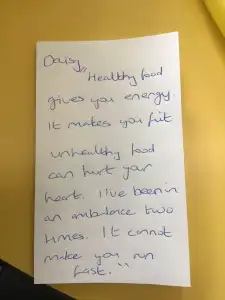 Daisy
"Healthy food
gives you energy.
It makes you fit
unhealthy food
can hurt your
heart. I've been in
an ambulance two
times. It cannot
make you run
fast."